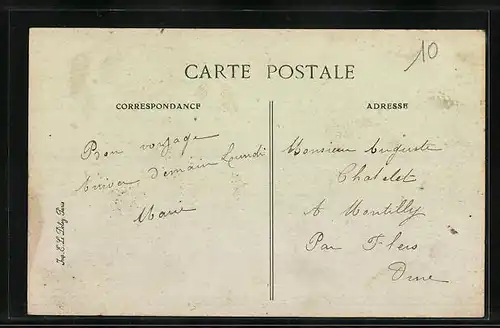 10
CARTE POSTALE
CORRESPONDANCE
ADRESSE
Bon voyage
Demain Lundi
Marie
Monsieur Auguste
Chatelet
A Montilly
Par Flers
Orne
Imp. E. L. Deley, Paris